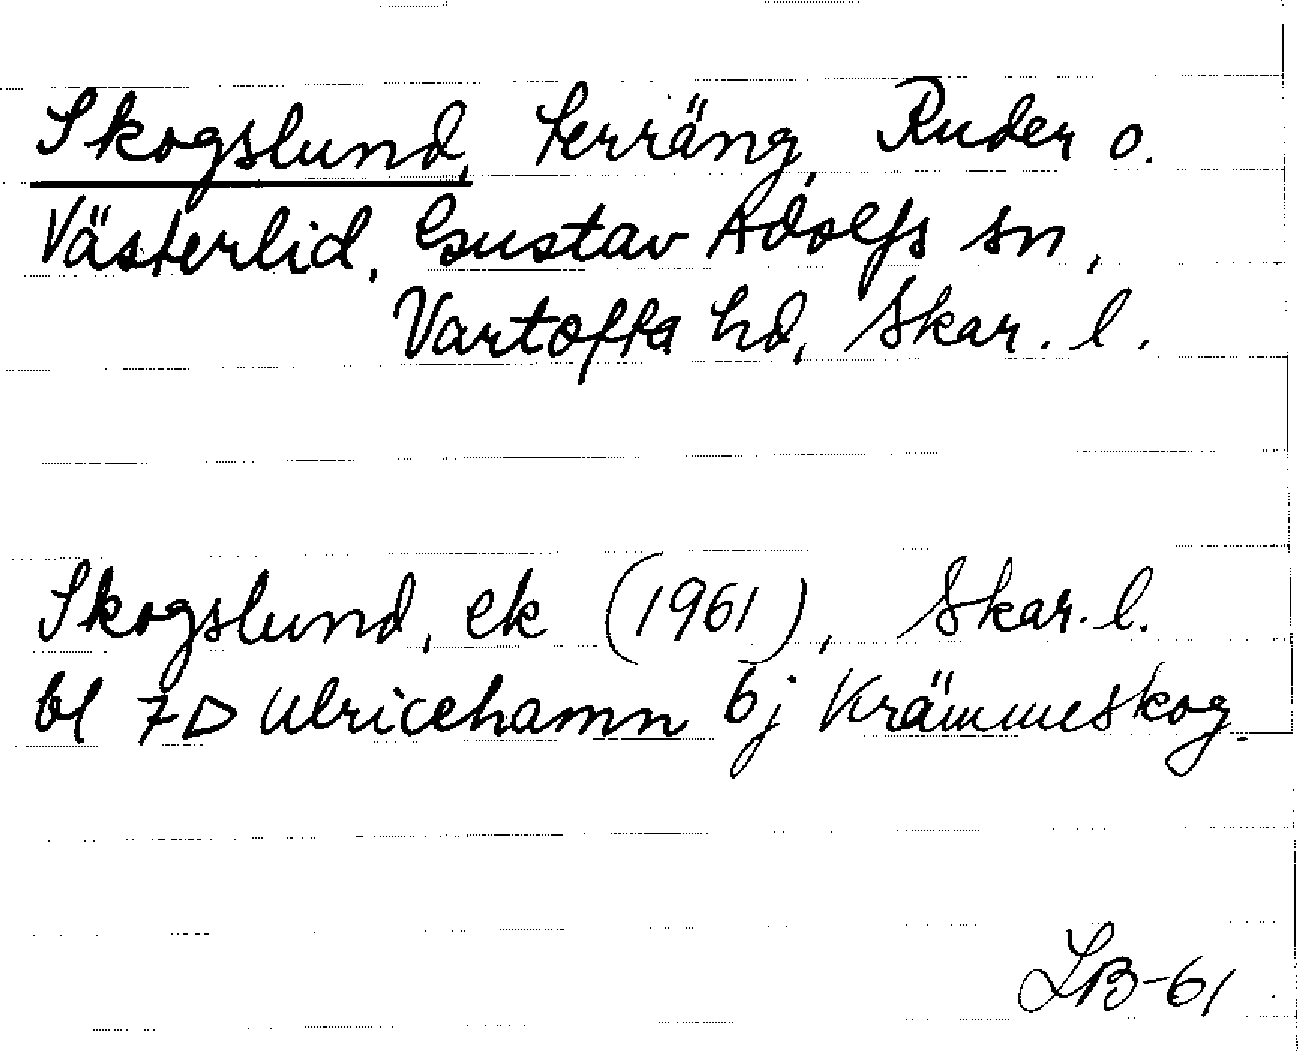 Skogslund, Terräng, Ruder o.
Västerlid, Gustav Adolfs sn,
Vartofta hd, Skar. l.
Skogslund, ek (1961), Skar. l.
bl 7D Ulricehamn bj Krämmeskog.
LB-61